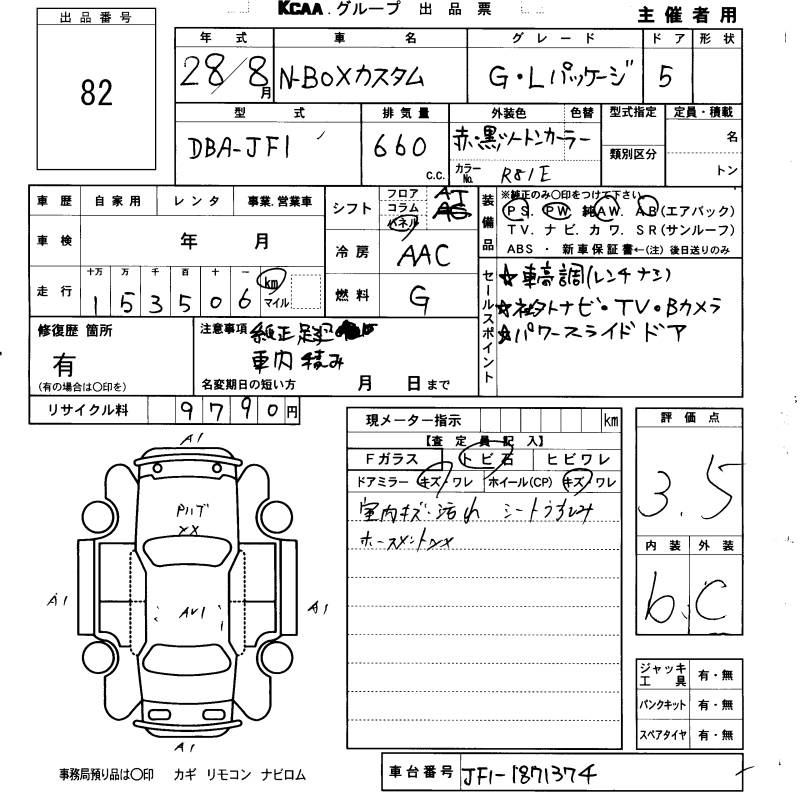 KCAA.グループ 出品票
主催者用
出品番号
82
年式 車名 グレード ドア 形状
28/8月 N-BOXカスタム G・Lパッケージ 5
型式 排気量 外装色 色替 型式指定 定員・積載
DBA-JF1 660 c.c. 赤・黒ツートンカラー 類別区分 名
カラーNo. R81E トン
車歴 自家用 レンタ 事業.営業車
シフト フロア コラム パネル AT
車検 年 月
冷房 AAC
走行 十万 万 千 百 十 一
153506 km マイル
燃料 G
装備品 ※純正のみ〇印をつけて下さい
PS. PW. 純AW. AB(エアバック)
TV. ナビ. カワ. SR(サンルーフ)
ABS ・ 新車保証書←(注) 後日送りのみ
セールスポイント
☆車高調(レンチナシ)
☆社外ナビ・TV・Bカメラ
☆パワースライドドア
修復歴 箇所
有
(有の場合は〇印を)
注意事項 純正
車内積み
名変期日の短い方 月 日まで
リサイクル料 9790円
現メーター指示 km
【査定員記入】
Fガラス トビ石 ヒビワレ
ドアミラー キズ・ワレ ホイール(CP) キズ・ワレ
室内キズ・汚れ シート
評価点
3.5
内装 外装
b C
ジャッキ工具 有・無
パンクキット 有・無
スペアタイヤ 有・無
A1
A1
AU1
A1
A1
事務局預り品は〇印 カギ リモコン ナビロム
車台番号 JF1-1871374